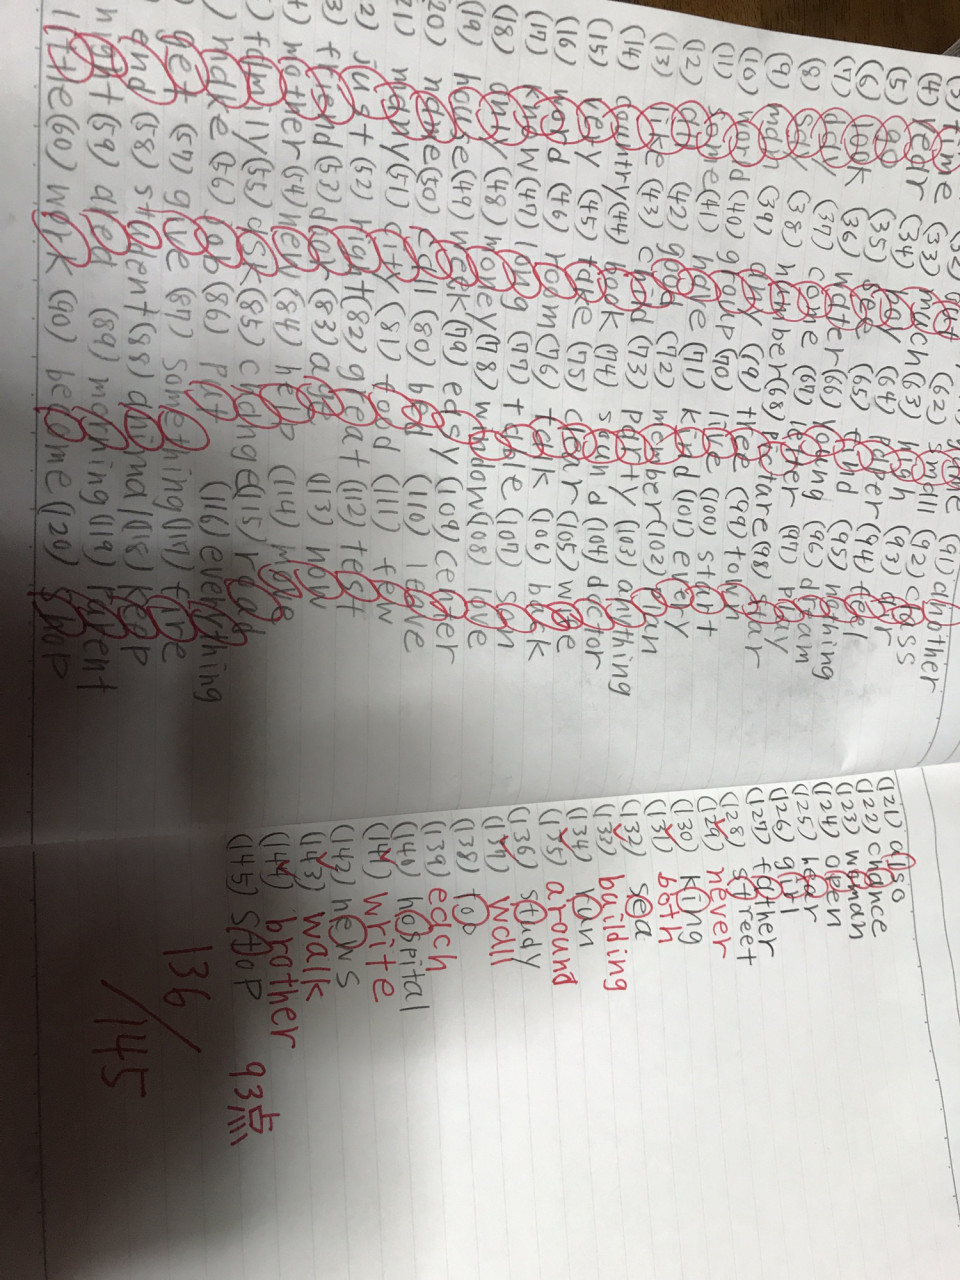 (91) another
(62) smell (92) cross
time (33) much (63) high (93) air
(4) year (34) pay (64) paper (94) feel
(5) go (35) see (65) find (95) nothing
(6) look (36) water (66) young (96) dream
(7) day (37) come (67) letter (97) play
(8) say (38) number (68) pictare (98) star
(9) man (39) any (69) three (99) town
(10) word (40) group (70) live (100) start
(11) some (41) have (71) kind (101) every
(12) do (42) good (72) member (102) plan
(13) like (43) child (73) party (103) anything
(14) country (44) book (74) sound (104) doctor
(15) very (45) take (75) clear (105)
(16) word (46) room (76) talk (106) back
(17) know (47) long (77) table (107) son
(18) only (48) move (78) window (108) love
(19) house (49) week (79) easy (109) center
20) name (50) call (80) bad (110) leave
21) many (51) city (81) food (111) few
2) just (52) right (82) great (112) test
3) friend (53) door (83) age (113) now
mother (54) new (84) help (114) move
family (55) ask (85) change (115) read
make (56) job (86) put (116) everything
get (57) give (87) something (117) fire
end (58) student (88) animal (118) keep
night (59) area (89) morning (119) parent
little (60) work (90) become (120) shop
(121) also
(122) chance
(123) woman
(124) open
(125) hear
(126) girl
(127) father
(128) street
(129) never
(130) king
(131) both
(132) sea
(133) building
(134) run
(135) around
(136) study
(137) wall
(138) top
(139) each
(140) hospital
(141) write
(142) news
(143) walk
(144) brother
(145) stop
136/145 93点